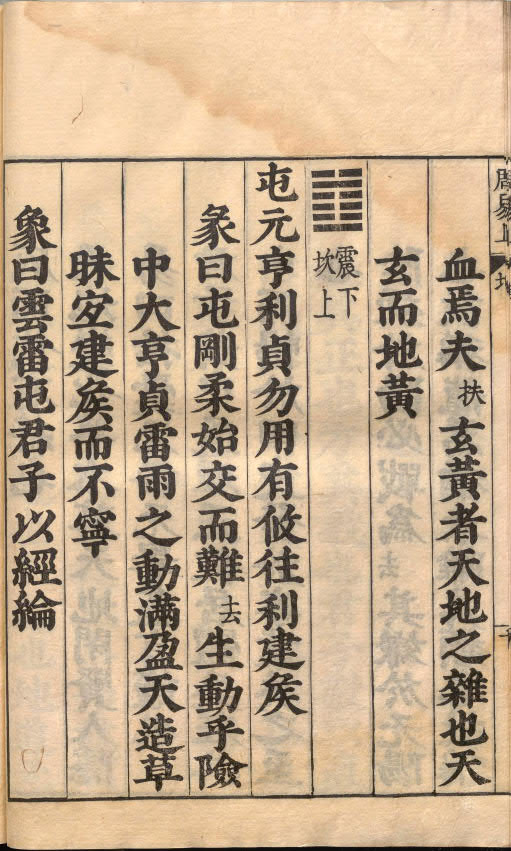 周易上
血焉夫扶玄黃者天地之雜也天
玄而地黃
震下
坎上
屯元亨利貞勿用有攸往利建矦
彖曰屯剛柔始交而難去生動乎險
中大亨貞雷雨之動滿盈天造草
昧宐建矦而不寧
象曰雲雷屯君子以經綸